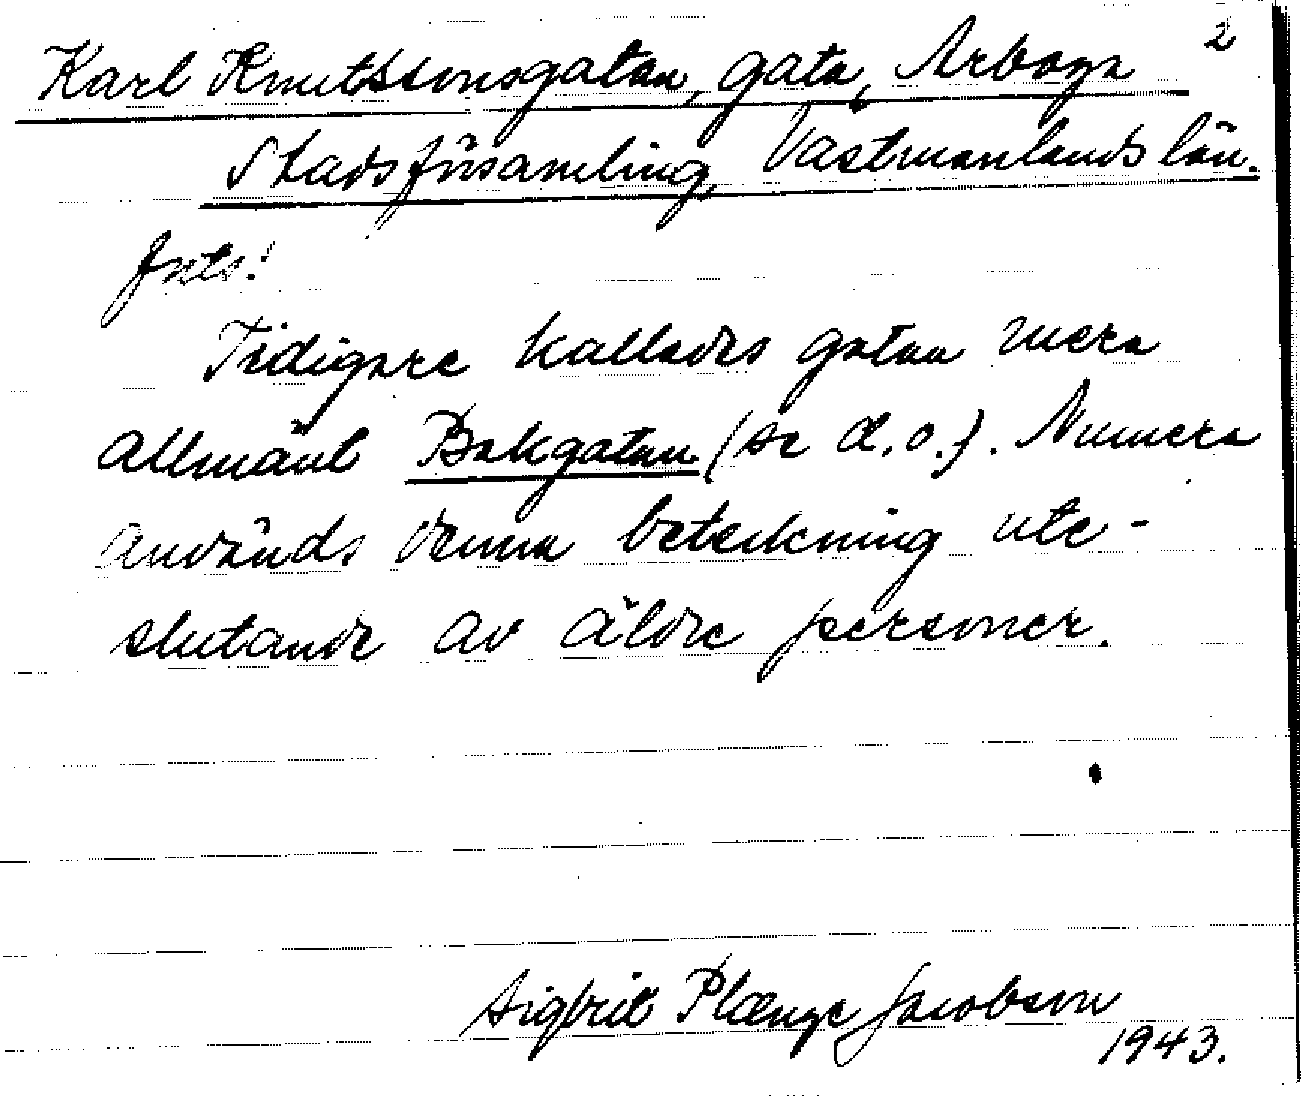 2
Karl Knutssonsgatan, gata, Arboga
Stadsförsamling, Västmanlands län.
Forts.:
Tidigare kallades gatan mera
allmänt Bakgatan (se d.o.). Numera
används denna beteckning ute-
slutande av äldre personer.
Sigfrid Plænge Jacobson
1943.